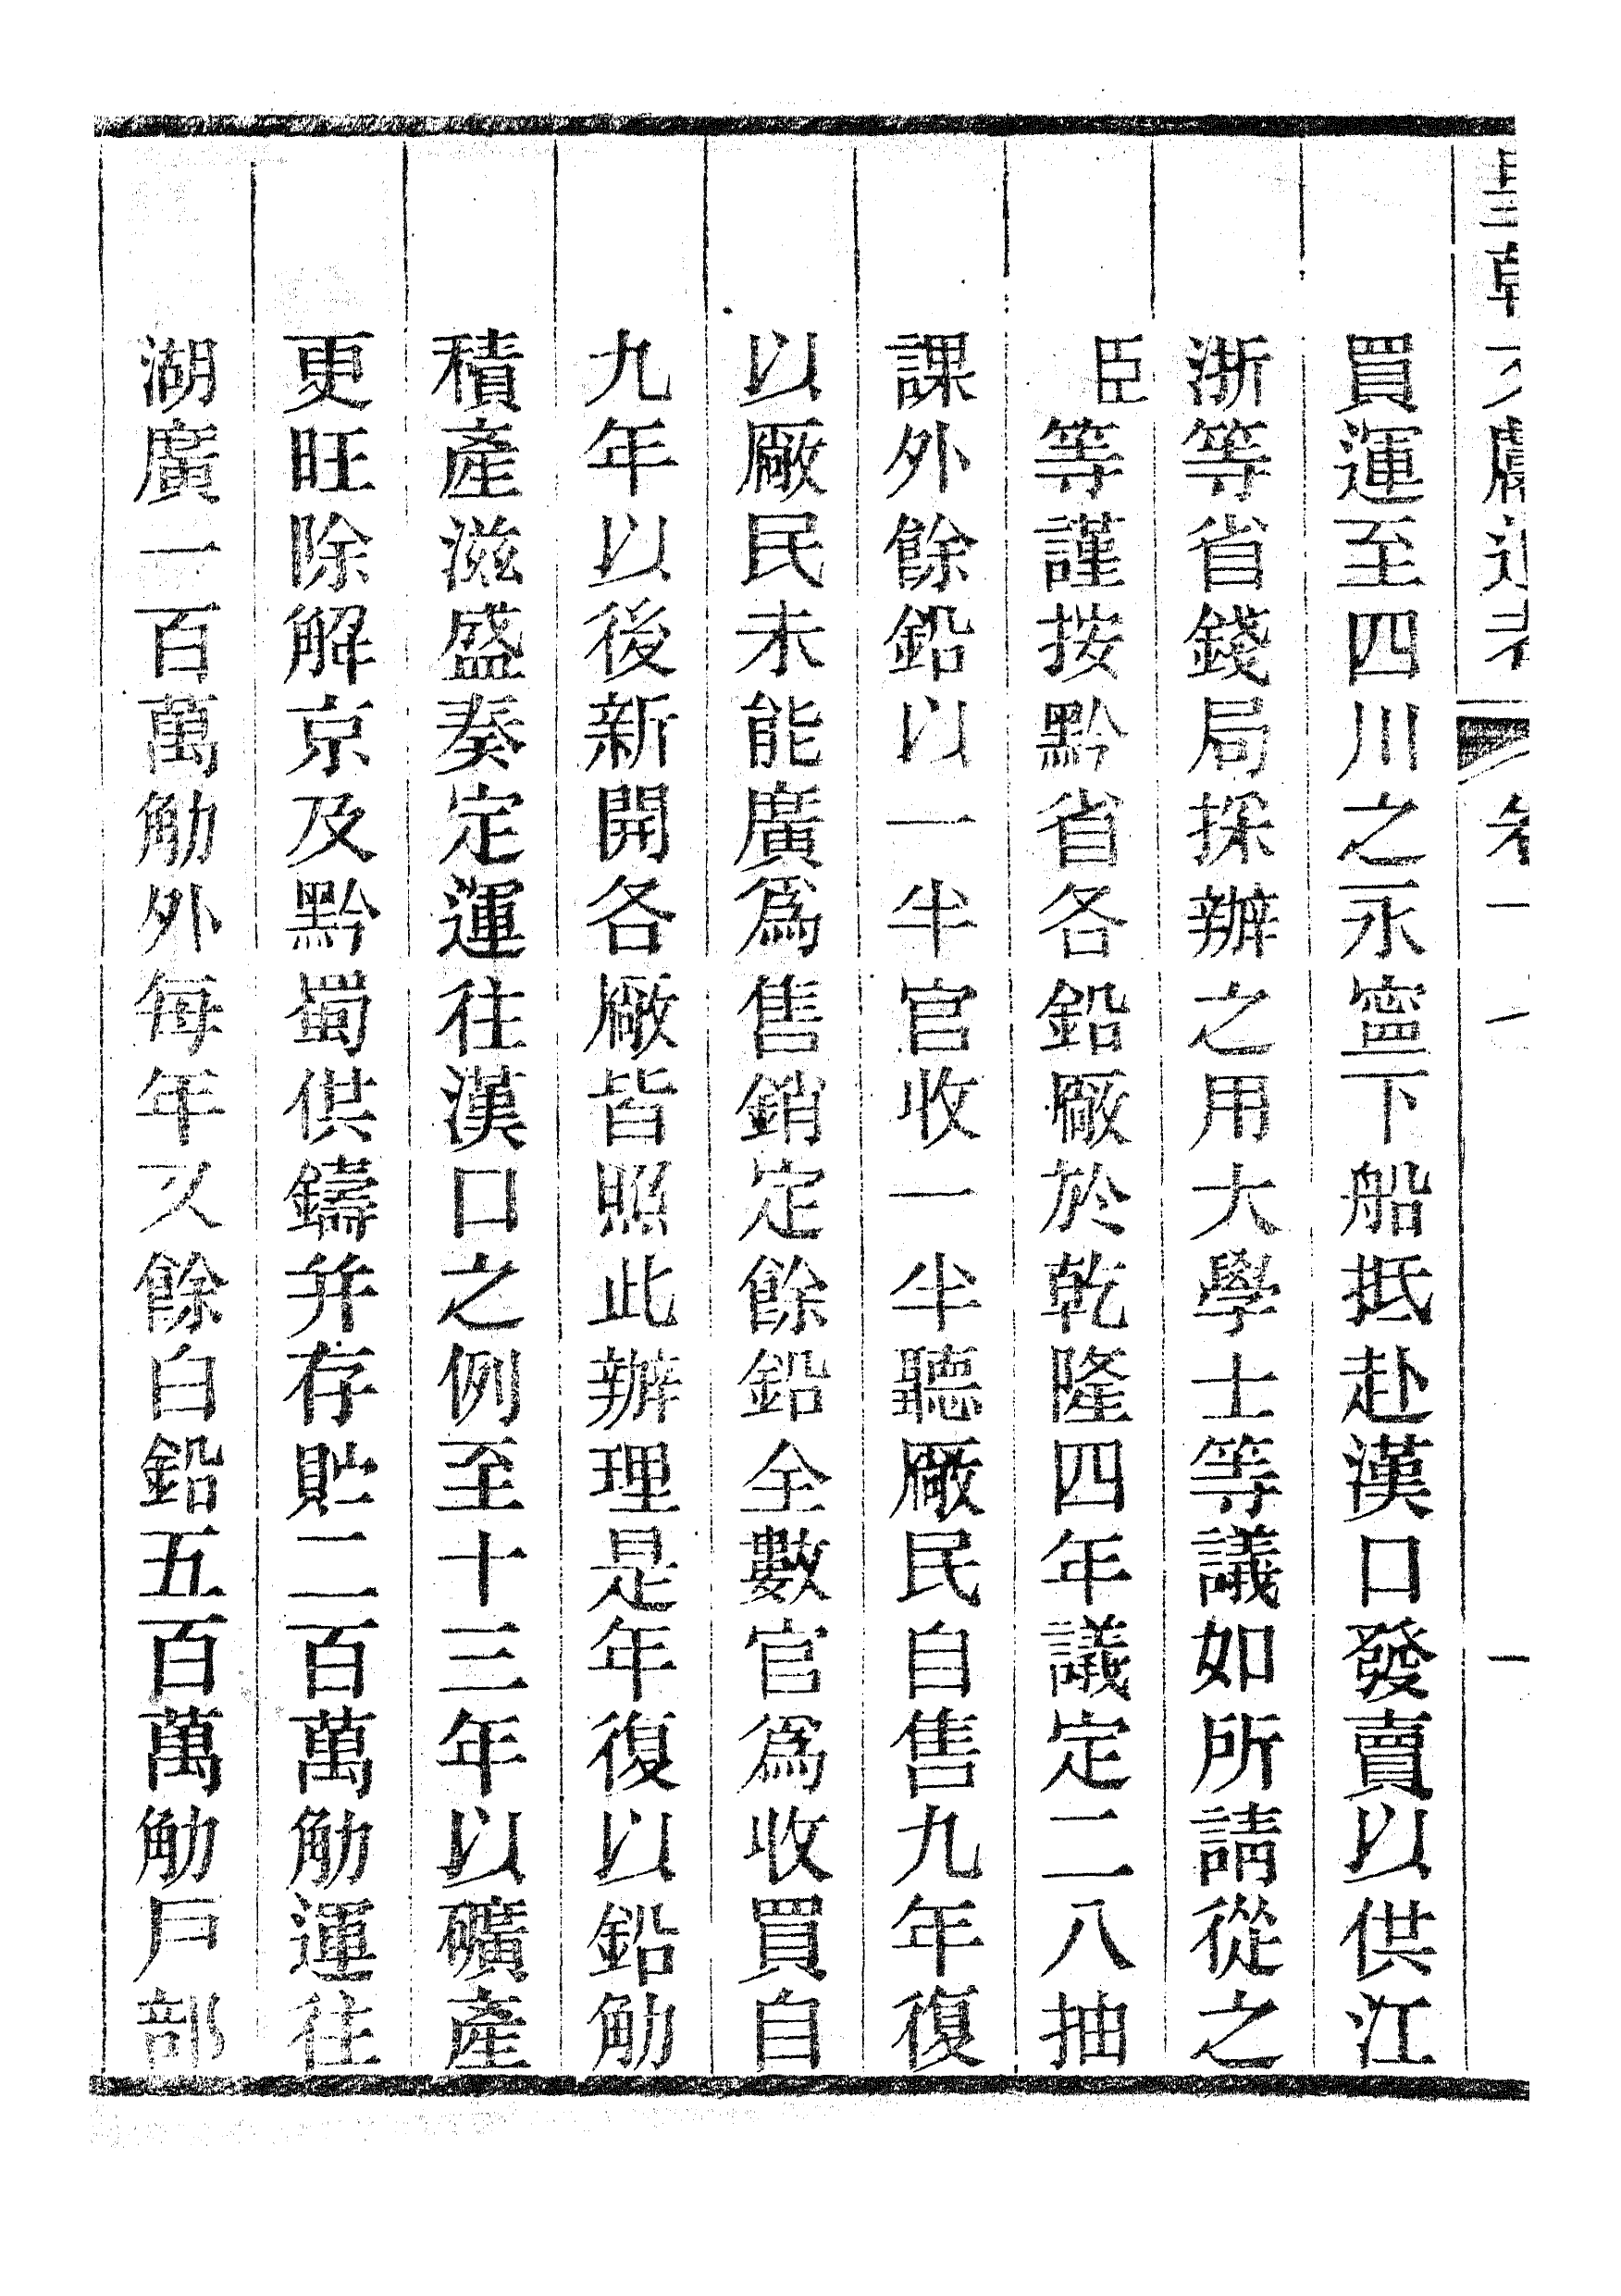 買運至四川之永寧下船抵赴漢口發賣以供江
浙等省錢局採辦之用大學士等議如所請從之
臣等謹按黔省各鉛厰於乾隆四年議定二八抽
課外餘鉛以一半官收一半聽厰民自售九年復
以厰民未能廣爲售銷定餘鉛全數官爲收買自
九年以後新開各厰皆照此辦理是年復以鉛觔
積產滋盛奏定運往漢口之例至十三年以礦產
更旺除解京及黔蜀供鑄并存貯二百萬觔運往
湖廣一百萬觔外每年又餘白鉛五百萬觔戸部